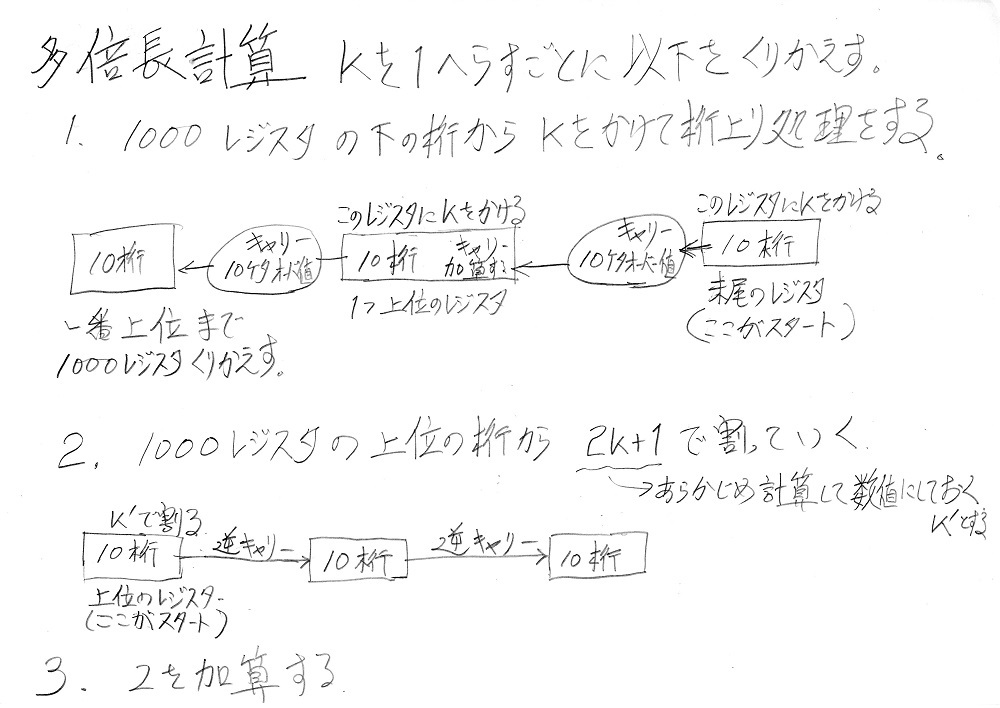 多倍長計算 Kを1へらすごとに以下をくりかえす。
1. 1000レジスタの下の桁からKをかけて桁上り処理をする。
このレジスタにKをかける
このレジスタにKをかける
10桁
キャリー
10ケタオーバー値
10桁
キャリー
加算する
キャリー
10ケタオーバー値
10桁
1つ上位のレジスタ
末尾のレジスタ
(ここがスタート)
一番上位まで
1000レジスタくりかえす。
2. 1000レジスタの上位の桁から 2K+1で割っていく
→あらかじめ計算して数値にしておく
K'とする
K'で割る
10桁
逆キャリー
10桁
逆キャリー
10桁
上位のレジスター
(ここがスタート)
3. 2を加算する